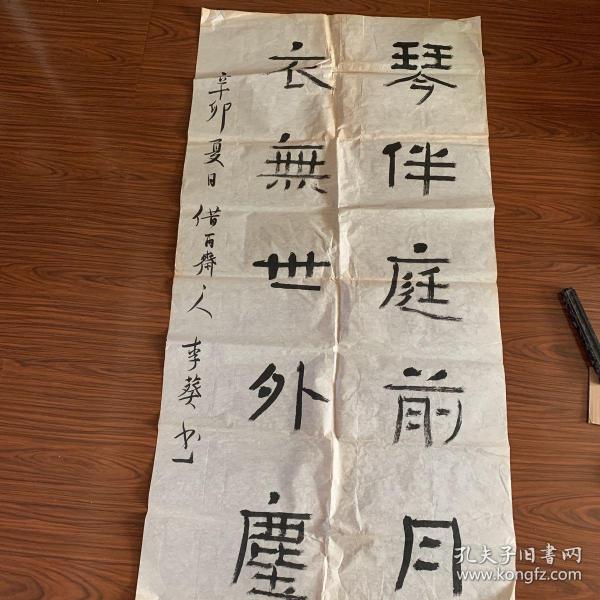 琴伴庭前月
衣無世外塵
辛卯夏日借百齋人李葵书
孔夫子旧书网
www.kongfz.com